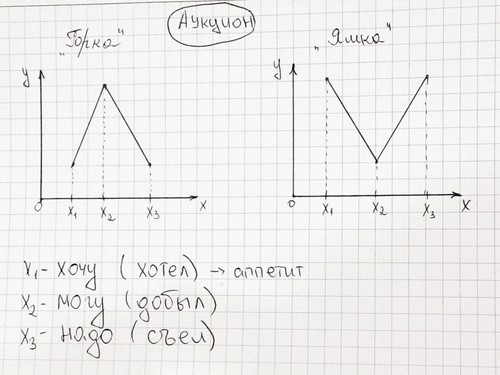 Аукцион
"Горка"
"Ямка"
y
y
0
x₁
x₂
x₃
x
0
x₁
x₂
x₃
x
x₁ - хочу (хотел) → аппетит
x₂ - могу (добыл)
x₃ - надо (съел)